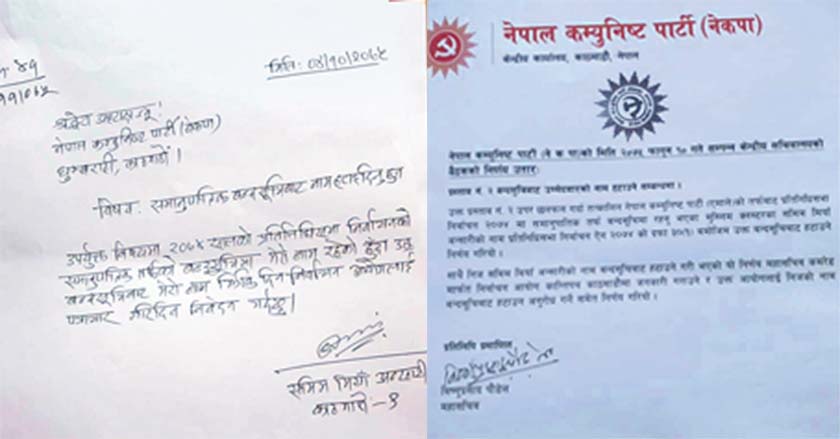 मिति: ०४/१०/२०७५
श्रद्धेय अध्यक्षज्यू!
नेपाल कम्युनिष्ट पार्टी (नेकपा)
धुम्बराही, काठमाडौं।
विषय: समानुपातिक बन्दसूचिबाट नाम हटाईदिनु हुन
उपर्युक्त बिषयमा २०७४ सालको प्रतिनिधिसभा निर्वाचनको
समानुपातिक तर्फको बन्दसूचिमा मेरो नाम रहेको हुँदा उक्त
बन्दसूचिबाट मेरो नाम झिकि दिन निर्वाचन आयोगलाई
पत्राचार गरिदिन निवेदन गर्दछु।
समिम मियाँ अन्सारी
काठमाडौं-९
नेपाल कम्युनिष्ट पार्टी (नेकपा)
केन्द्रीय कार्यालय, काठमाडौं, नेपाल
नेपाल कम्युनिष्ट पार्टी (ने क पा)को मिति २०७५ फागुन १० गते सम्पन्न केन्द्रीय सचिवालयको
बैठकको निर्णय उतार:
प्रस्ताव नं. २ बन्दसूचिबाट उम्मेदवारको नाम हटाउने सम्बन्धमा।
उक्त प्रस्ताव नं. २ उपर छलफल गर्दा तत्कालिन नेपाल कम्युनिष्ट पार्टी (एमाले)को तर्फबाट प्रतिनिधिसभा
निर्वाचन २०७४ मा समानुपातिक तर्फ बन्दसूचिमा रहनु भएका मुस्लिम क्लस्टरका समिम मियाँ
अन्सारीको नाम प्रतिनिधिसभा निर्वाचन ऐन २०७४ को दफा बमोजिम उक्त बन्दसूचिबाट हटाउने
निर्णय गरियो।
साथै निज समिम मियाँ अन्सारीको नाम बन्दसूचिबाट हटाउने गरी भएको यो निर्णय महासचिव कमरेड
मार्फत निर्वाचन आयोग कान्तिपथ काठमाडौंमा जानकारी गराउने र उक्त आयोगलाई निजको नाम
बन्दसूचिबाट हटाउन अनुरोध गर्ने समेत निर्णय गरियो।
प्रतिलिपि प्रमाणित
विष्णुप्रसाद पौडेल
महासचिव